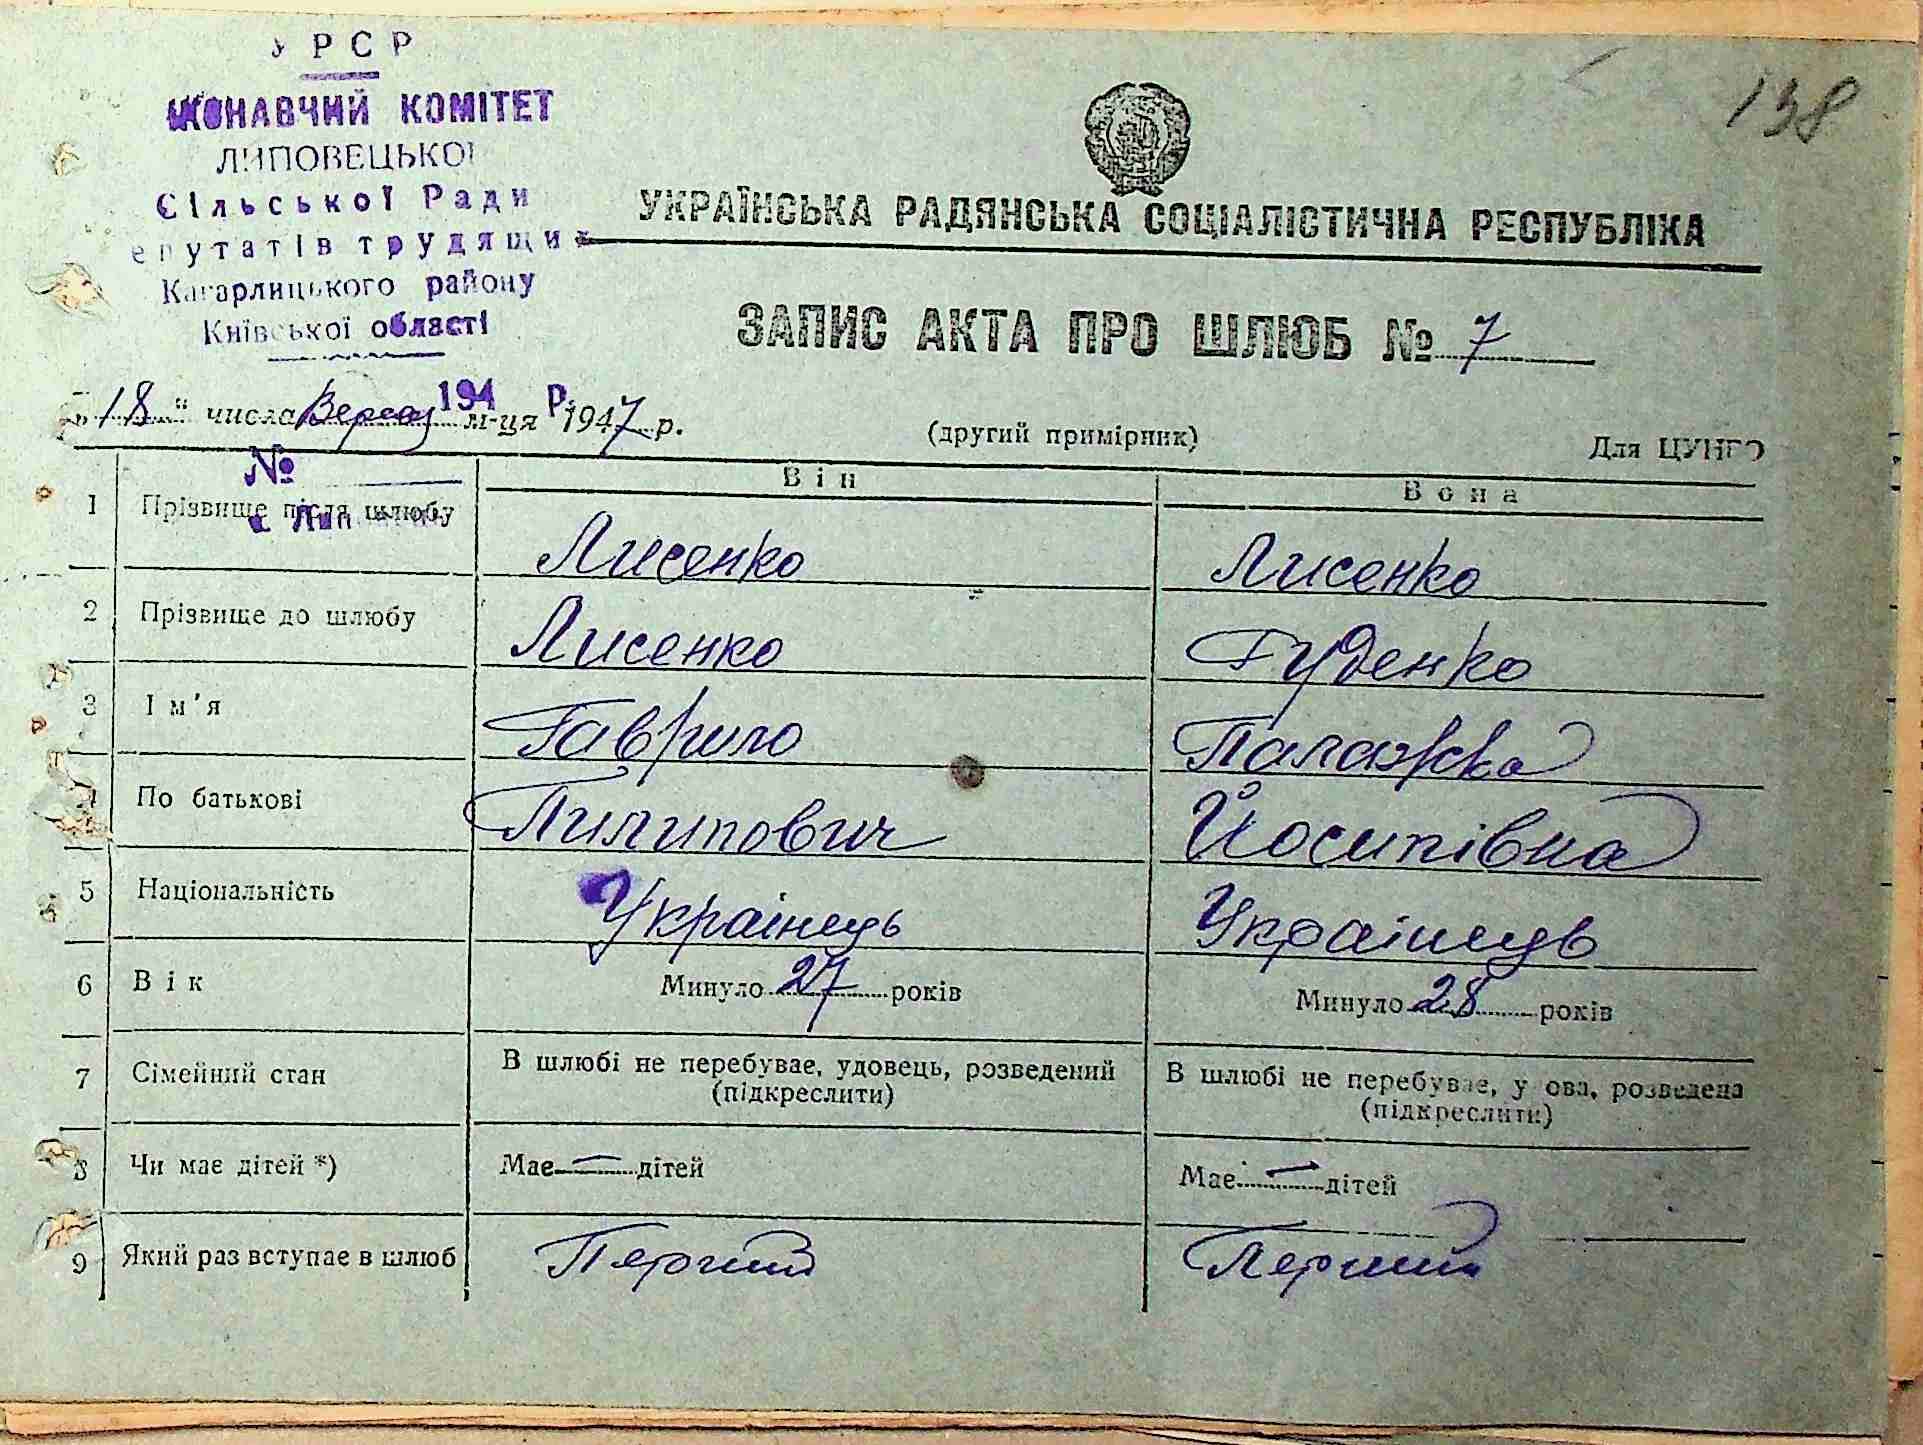 УРСР
КОНАВЧИЙ КОМІТЕТ
ЛИПОВЕЦЬКОЇ
Сільської Ради
епутатів трудящих
Кагарлицького району
Київської області
138
УКРАЇНСЬКА РАДЯНСЬКА СОЦІАЛІСТИЧНА РЕСПУБЛІКА
ЗАПИС АКТА ПРО ШЛЮБ № 7
194 Р.
„18" числа м-ця 1947 р.
(другий примірник)
Для ЦУНГО
№
Він
Вона
1 Прізвище після шлюбу Лисенко Лисенко
с Лип
2 Прізвище до шлюбу Лисенко Гуденко
3 Ім'я Гаврило Палажка
4 По батькові Пилипович Йосипівна
5 Національність Українець Українець
6 Вік Минуло 27 років Минуло 28 років
7 Сімейний стан В шлюбі не перебуває, удовець, розведений В шлюбі не перебуває, у ова, розведена
(підкреслити) (підкреслити)
8 Чи має дітей *) Має — дітей Має — дітей
9 Який раз вступає в шлюб Перший Перший